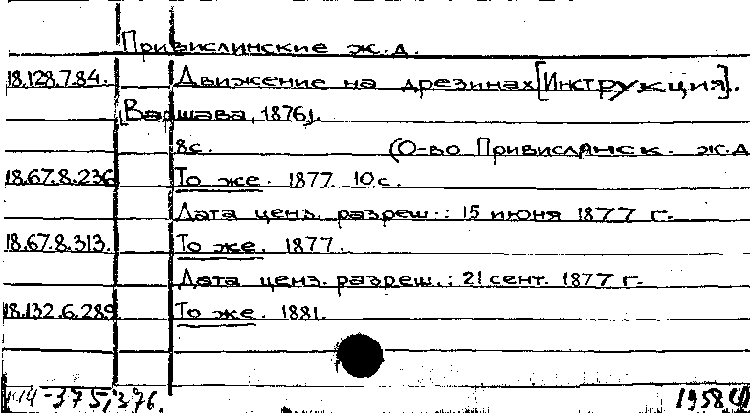 Привислинские ж.д.
18.128.7.84. Движение на дрезинах [Инструкция].
[Варшава, 1876].
8с. (О-во Привислянск. ж.д
18.67.8.236 То же. 1877. 10с.
Дата ценз. разреш.: 15 июня 1877 г.
18.67.8.313. То же. 1877.
Дата ценз. разреш.: 21 сент. 1877 г.
18.132.6.289 То же. 1881.
-375,376. 1958